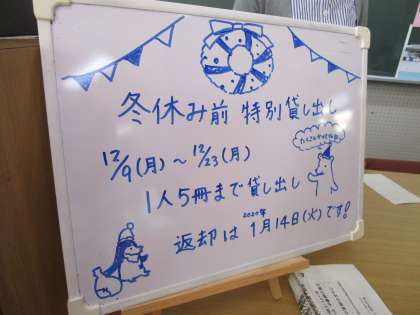 冬休み前 特別貸し出し
12/9(月)～12/23(月)
1人5冊まで貸し出し
2020年
返却は1月14日(火)です!